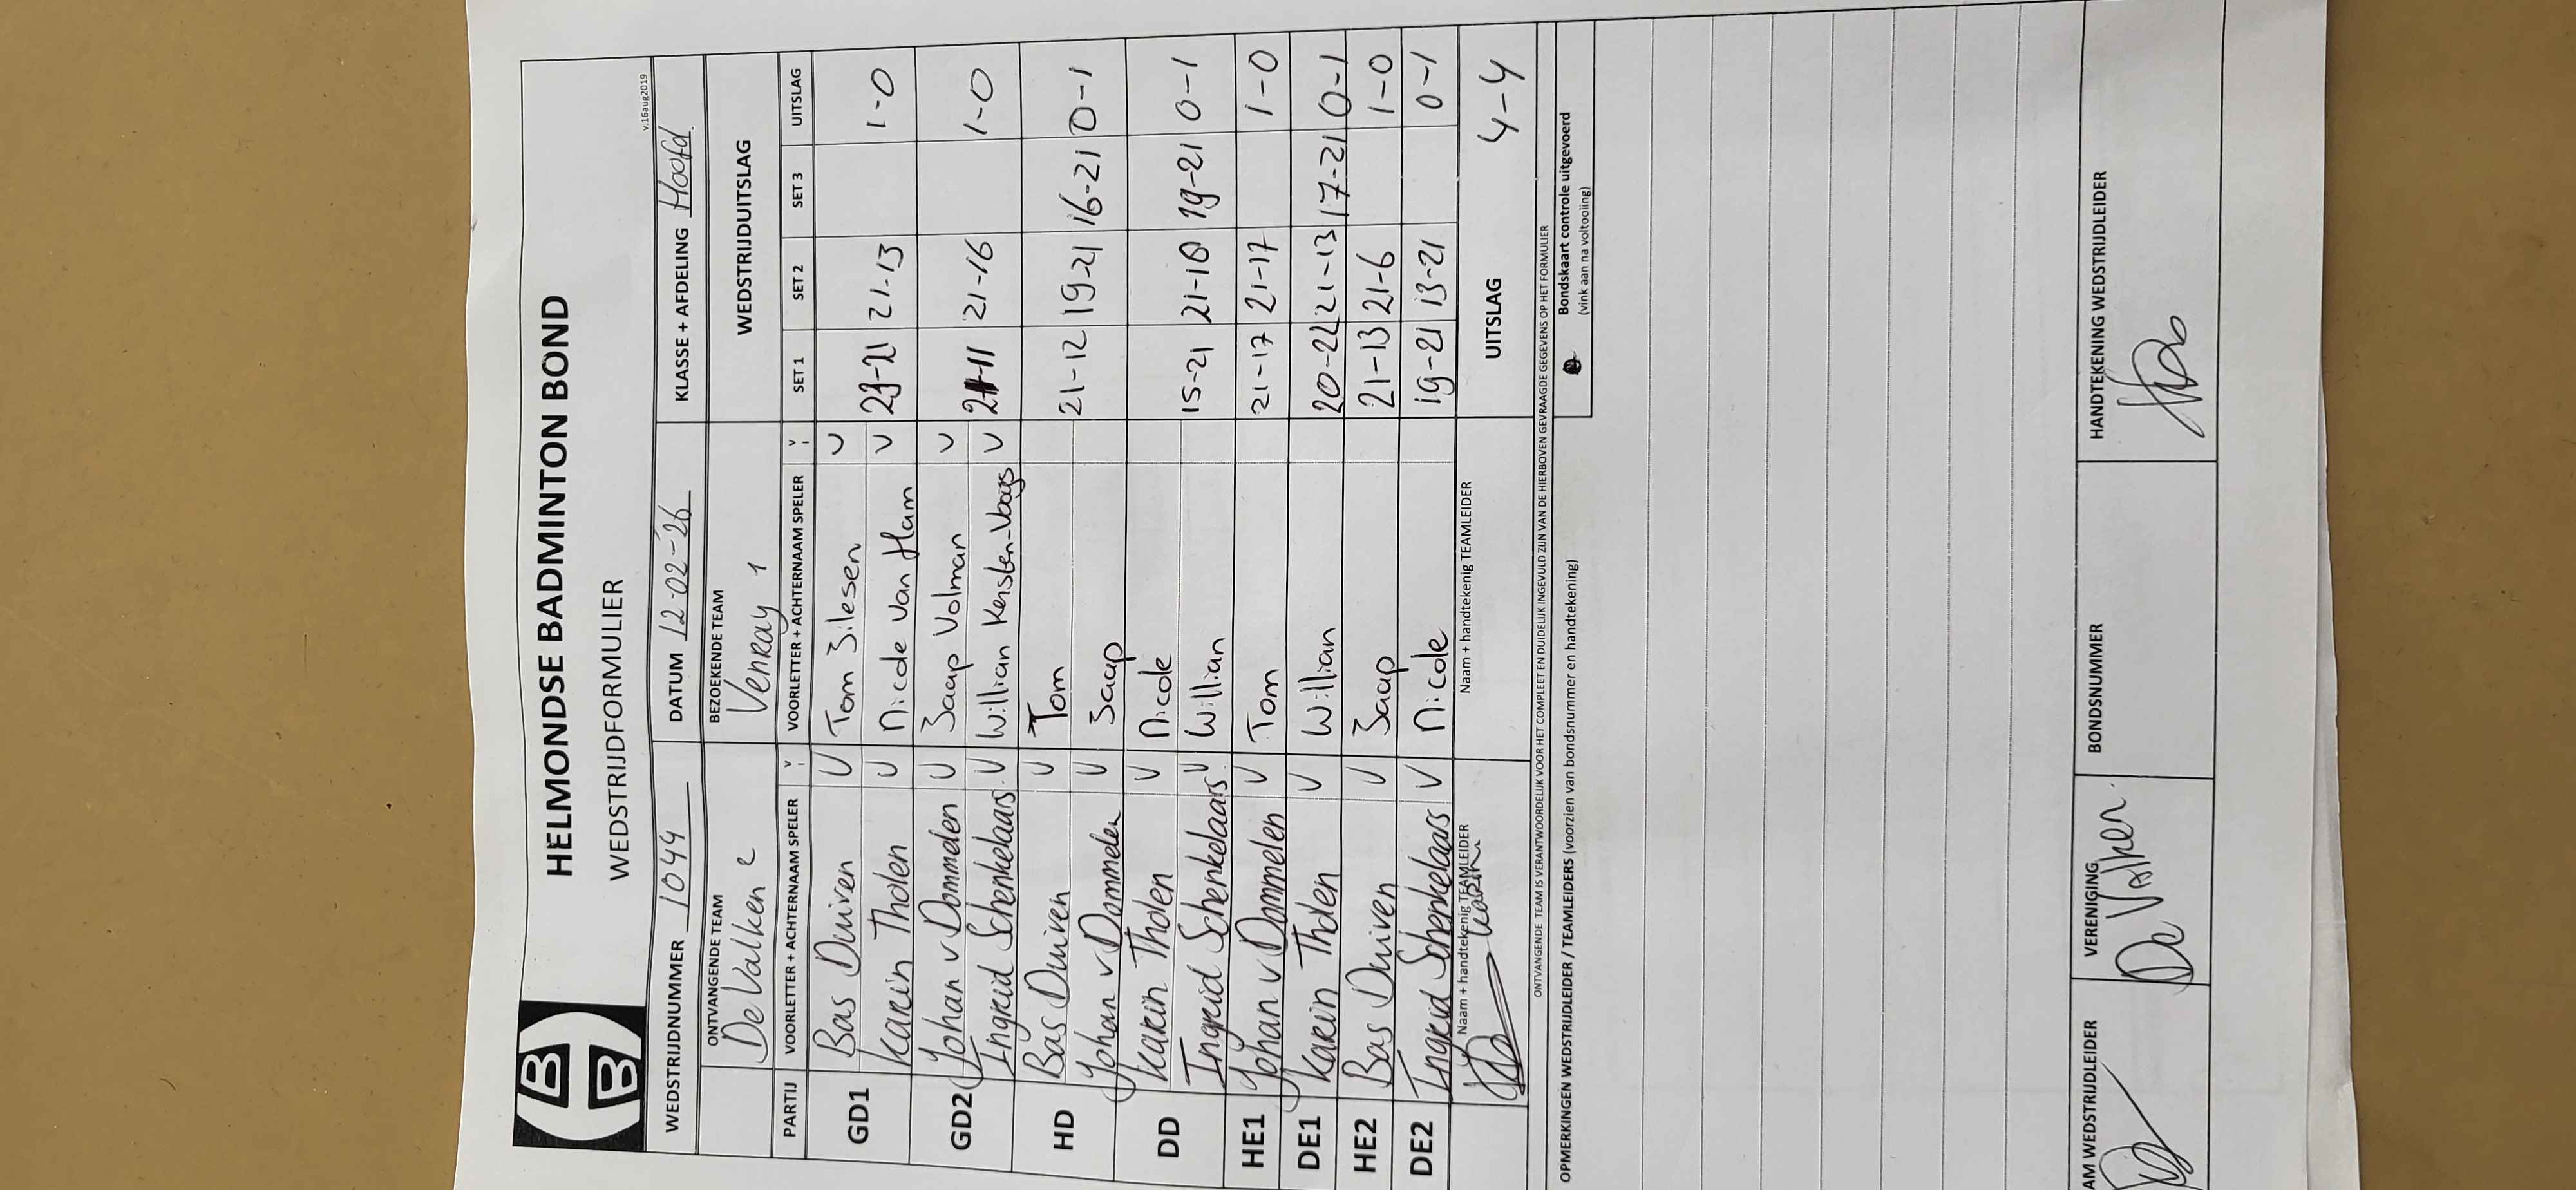 HELMONDSE BADMINTON BOND
WEDSTRIJDFORMULIER
v.16aug2019
WEDSTRIJDNUMMER 1044 DATUM 12-02-26 KLASSE + AFDELING Hoofd
ONTVANGENDE TEAM BEZOEKENDE TEAM WEDSTRIJDUITSLAG
De Valken 2 Venray 1
PARTIJ VOORLETTER + ACHTERNAAM SPELER V VOORLETTER + ACHTERNAAM SPELER V SET 1 SET 2 SET 3 UITSLAG
GD1 Bas Duiven V Tom Jilesen V
Karin Tholen V Nicole van Ham V 23-21 21-13 1-0
GD2 Johan v Dommelen V Jaap Volman V
Ingrid Schenkelaars V Willian Kersten-Voays V 21-11 21-16 1-0
HD Bas Duiven V Tom
Johan v Dommelen V Jaap 21-12 19-21 16-21 0-1
DD Karin Tholen V Nicole
Ingrid Schenkelaars V Willian 15-21 21-18 19-21 0-1
HE1 Johan v Dommelen V Tom 21-17 21-17 1-0
DE1 Karin Tholen V Willian 20-22 21-13 17-21 0-1
HE2 Bas Duiven V Jaap 21-13 21-6 1-0
DE2 Ingrid Schenkelaars V Nicole 19-21 13-21 0-1
Naam + handtekenig TEAMLEIDER Naam + handtekenig TEAMLEIDER UITSLAG 4-4
Karin
ONTVANGENDE TEAM IS VERANTWOORDELIJK VOOR HET COMPLEET EN DUIDELIJK INGEVULD ZIJN VAN DE HIERBOVEN GEVRAAGDE GEGEVENS OP HET FORMULIER
OPMERKINGEN WEDSTRIJDLEIDER / TEAMLEIDERS (voorzien van bondsnummer en handtekening)
Bondskaart controle uitgevoerd
(vink aan na voltooling)
AM WEDSTRIJDLEIDER VERENIGING BONDSNUMMER HANDTEKENING WEDSTRIJDLEIDER
De Valken